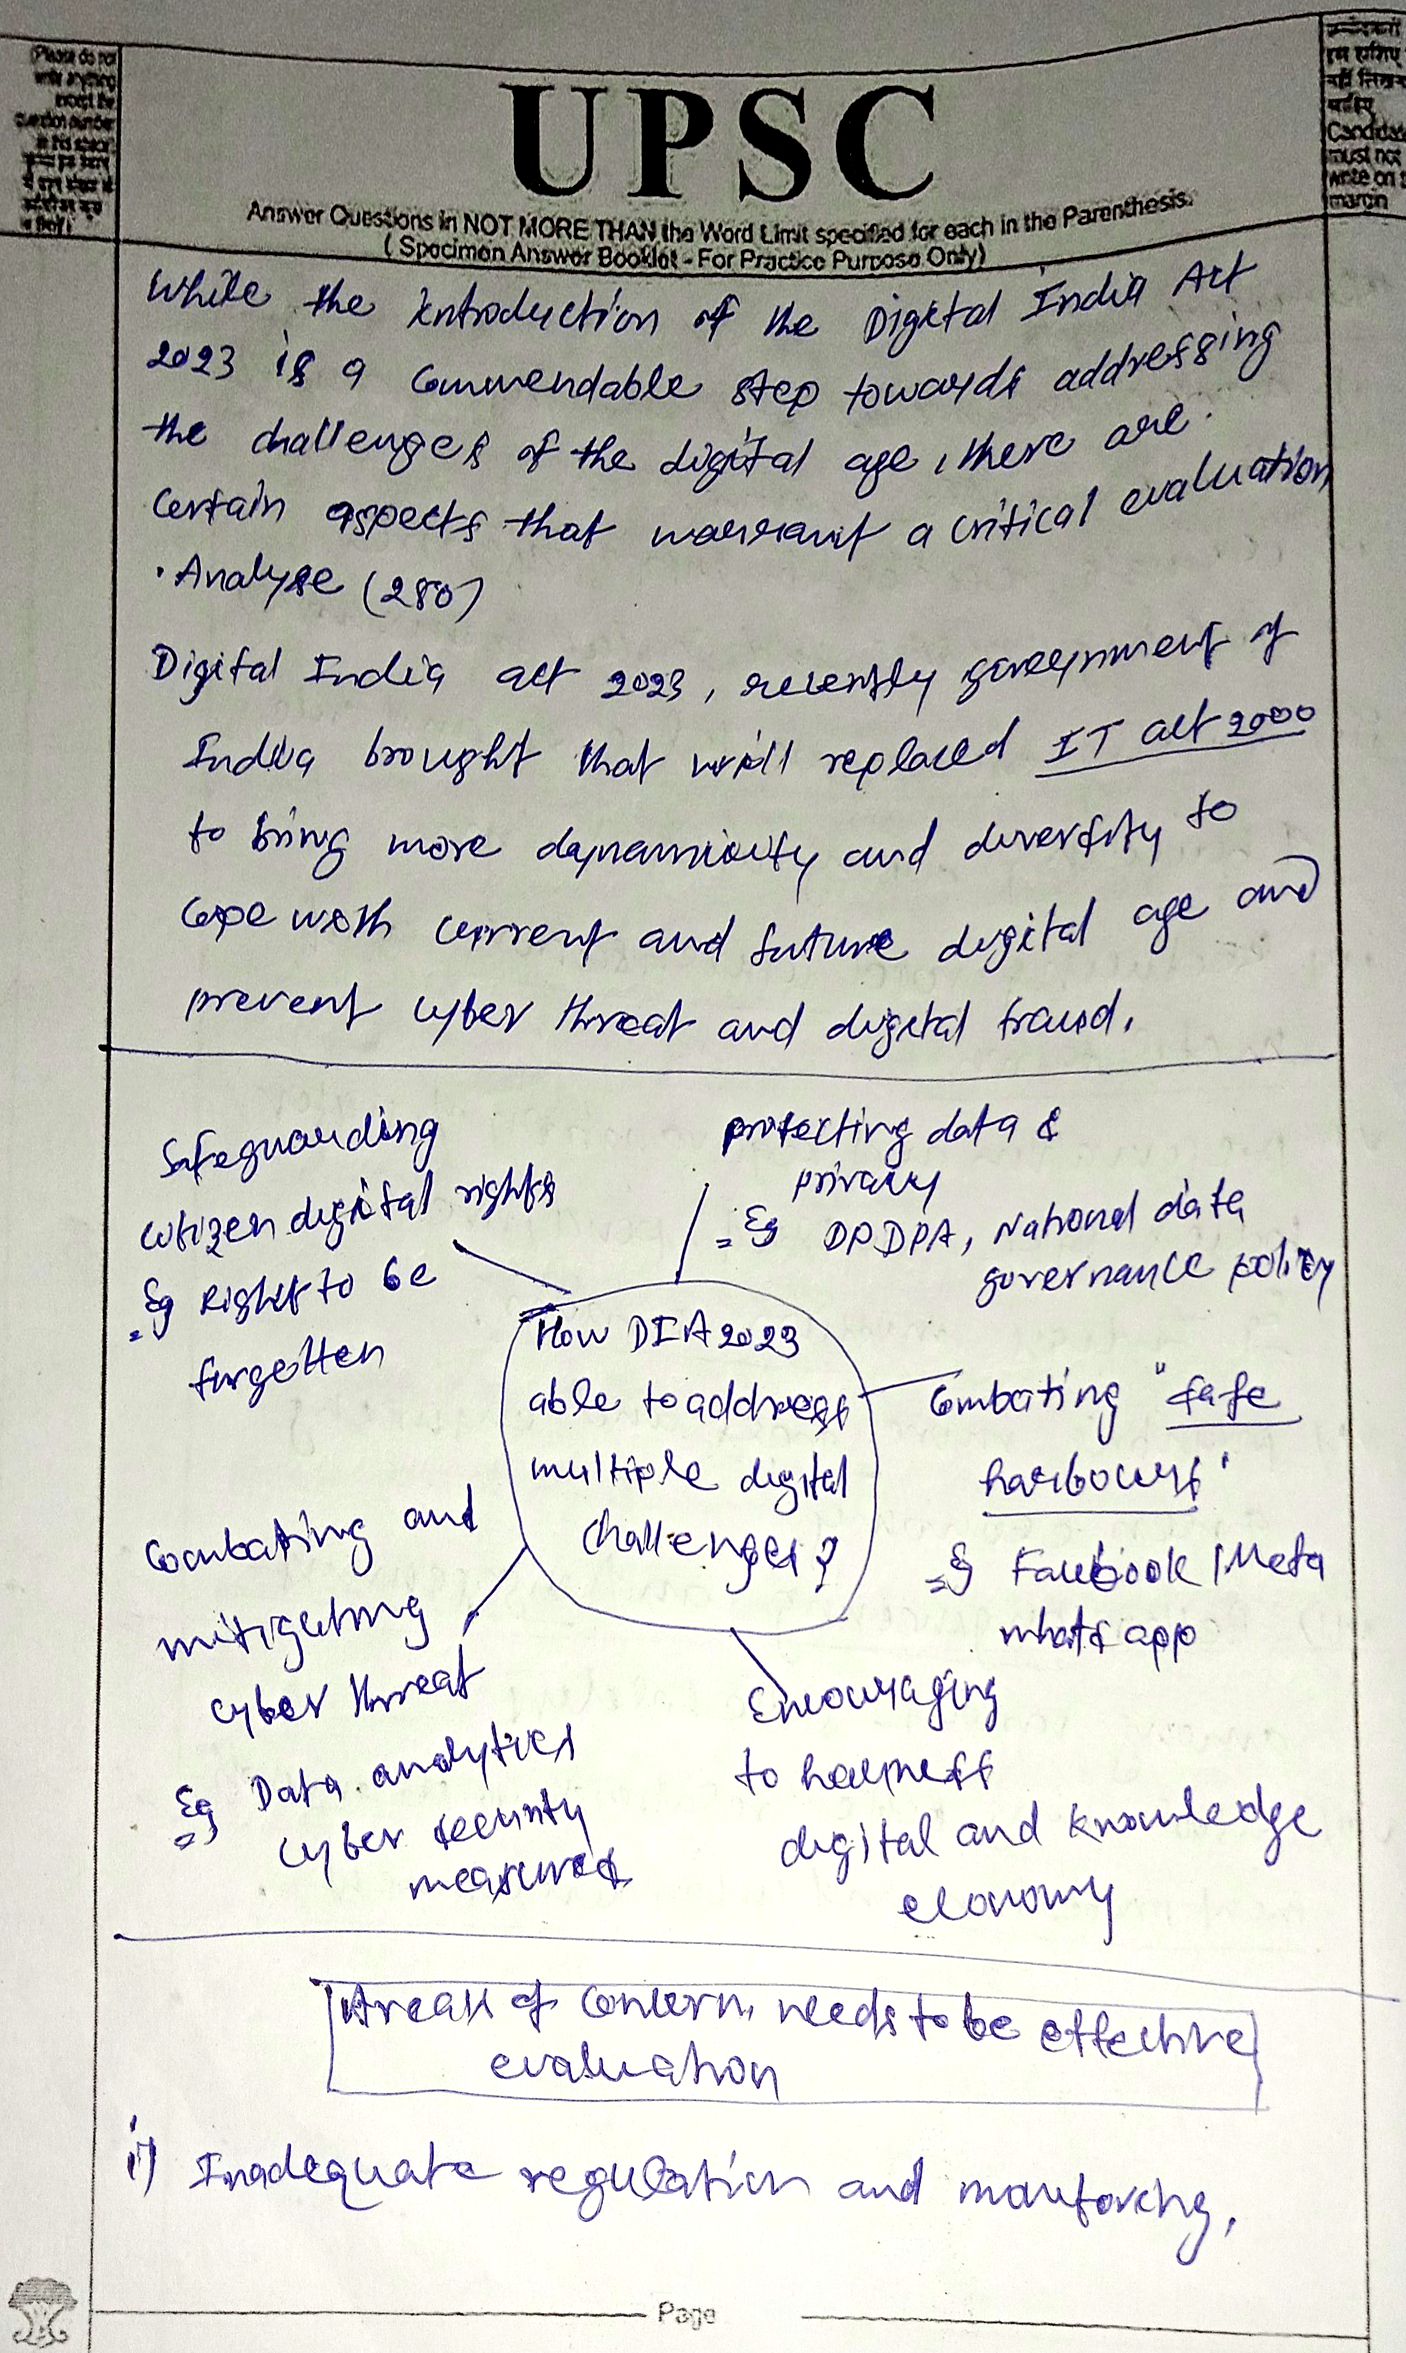 (Please do not
write anything
except the
question number
in this space
UPSC
Candidates
must not
write on this
margin
Answer Questions in NOT MORE THAN the Word Limit specified for each in the Parenthesis.
( Specimen Answer Booklet - For Practice Purpose Only)
While the introduction of the Digital India Act
2023 is a commendable step towards addressing
the challenges of the digital age, there are
certain aspects that warrant a critical evaluation
. Analyse (250)
Digital India act 2023, recently government of
India brought that will replaced IT act 2000
to bring more dynamicity and diversity to
cope with current and future digital age and
prevent cyber threat and digital fraud.
Safeguarding
citizen digital rights
Eg Right to be
forgotten
protecting data &
privacy
Eg DPDPA, National data
governance policy
How DIA 2023
able to address
multiple digital
challenges?
Combating "safe
harbours"
Eg Facebook / Meta
whats app
Combating and
mitigating
cyber threat
Eg Data analytics
cyber security
measures
Encouraging
to harness
digital and knowledge
economy
Areas of concern, needs to be effective
evaluation
i) Inadequate regulation and monitoring,
Page